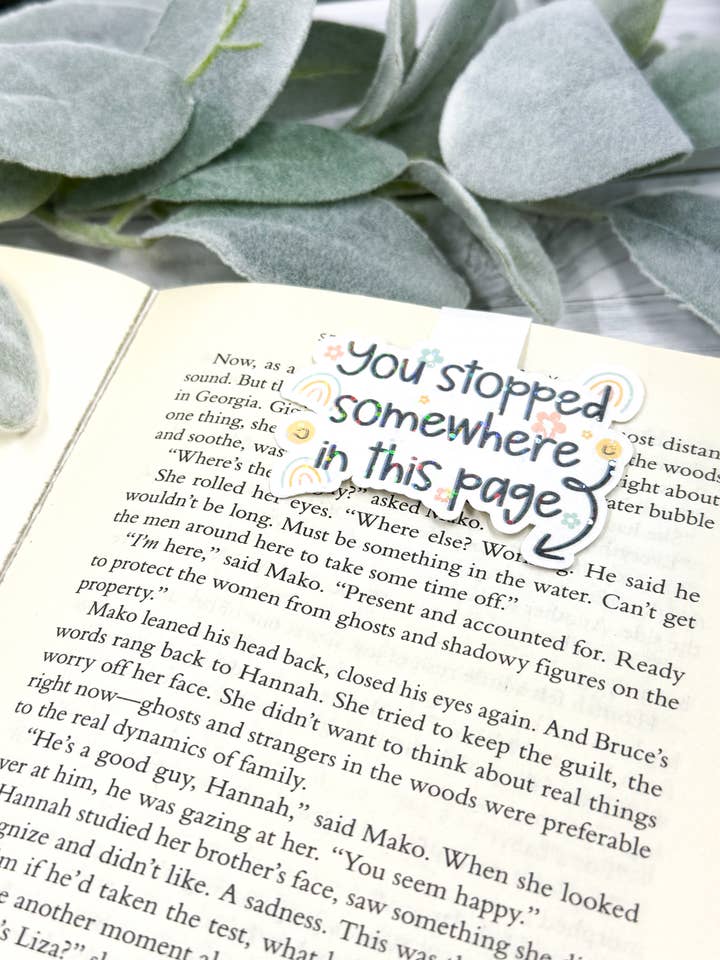 You stopped
somewhere
in this page
Now, as a
sound. But
in Georgia.
one thing, she
and soothe, was
"Where's the
She rolled her eyes. "Where else? He said he
wouldn't be long. Must be something in the water. Can't get
the men around here to take some time off."
"I'm here," said Mako. "Present and accounted for. Ready
to protect the women from ghosts and shadowy figures on the
property."
Mako leaned his head back, closed his eyes again. And Bruce's
words rang back to Hannah. She tried to keep the guilt, the
worry off her face. She didn't want to think about real things
right now—ghosts and strangers in the woods were preferable
to the real dynamics of family.
"He's a good guy, Hannah," said Mako. When she looked
at him, he was gazing at her. "You seem happy."
Hannah studied her brother's face, saw something she
and didn't like. A sadness. This was
if he'd taken the test, what
another moment
Liza?"
the woods
asked